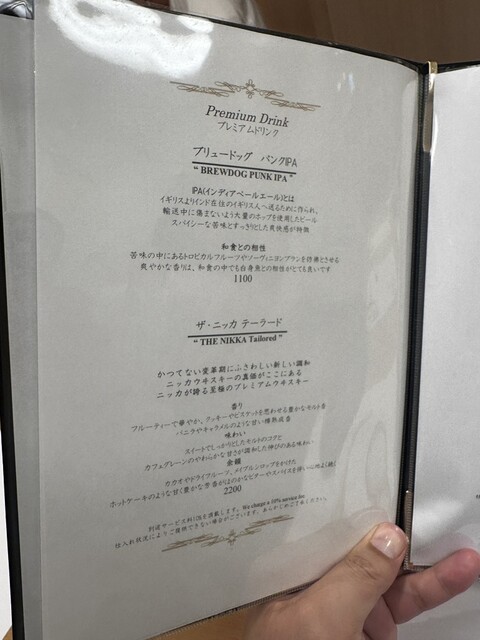 Premium Drink
プレミアムドリンク
ブリュードッグ パンクIPA
" BREWDOG PUNK IPA "
IPA(インディアペールエール)とは
イギリスよりインド在住のイギリス人へ送るために作られ、
輸送中に傷まないよう大量のホップを使用したビール
スパイシーな苦味とすっきりとした爽快感が特徴
和食との相性
苦味の中にあるトロピカルフルーツやソーヴィニヨンブランを彷彿とさせる
爽やかな香りは、和食の中でも白身魚との相性がとても良いです
1100
ザ・ニッカ テーラード
" THE NIKKA Tailored "
かつてない変革期にふさわしい新しい調和
ニッカウヰスキーの真価がここにある
ニッカが誇る至極のプレミアムウヰスキー
香り
フルーティーで華やか、クッキーやビスケットを思わせる豊かなモルト香
バニラやキャラメルのような甘い樽熟成香
味わい
スイートでしっかりとしたモルトのコクと
カフェグレーンのやわらかな甘さが調和した伸びのある味わい
余韻
カカオやドライフルーツ、メイプルシロップをかけた
ホットケーキのような甘く豊かな芳香がほのかなピアーやスパイスを伴い心地よく続く
2200
別途サービス料10%を頂戴します。 We charge a 10% service fee
仕入れ状況によりご提供できない場合がございます。あらかじめご了承ください。